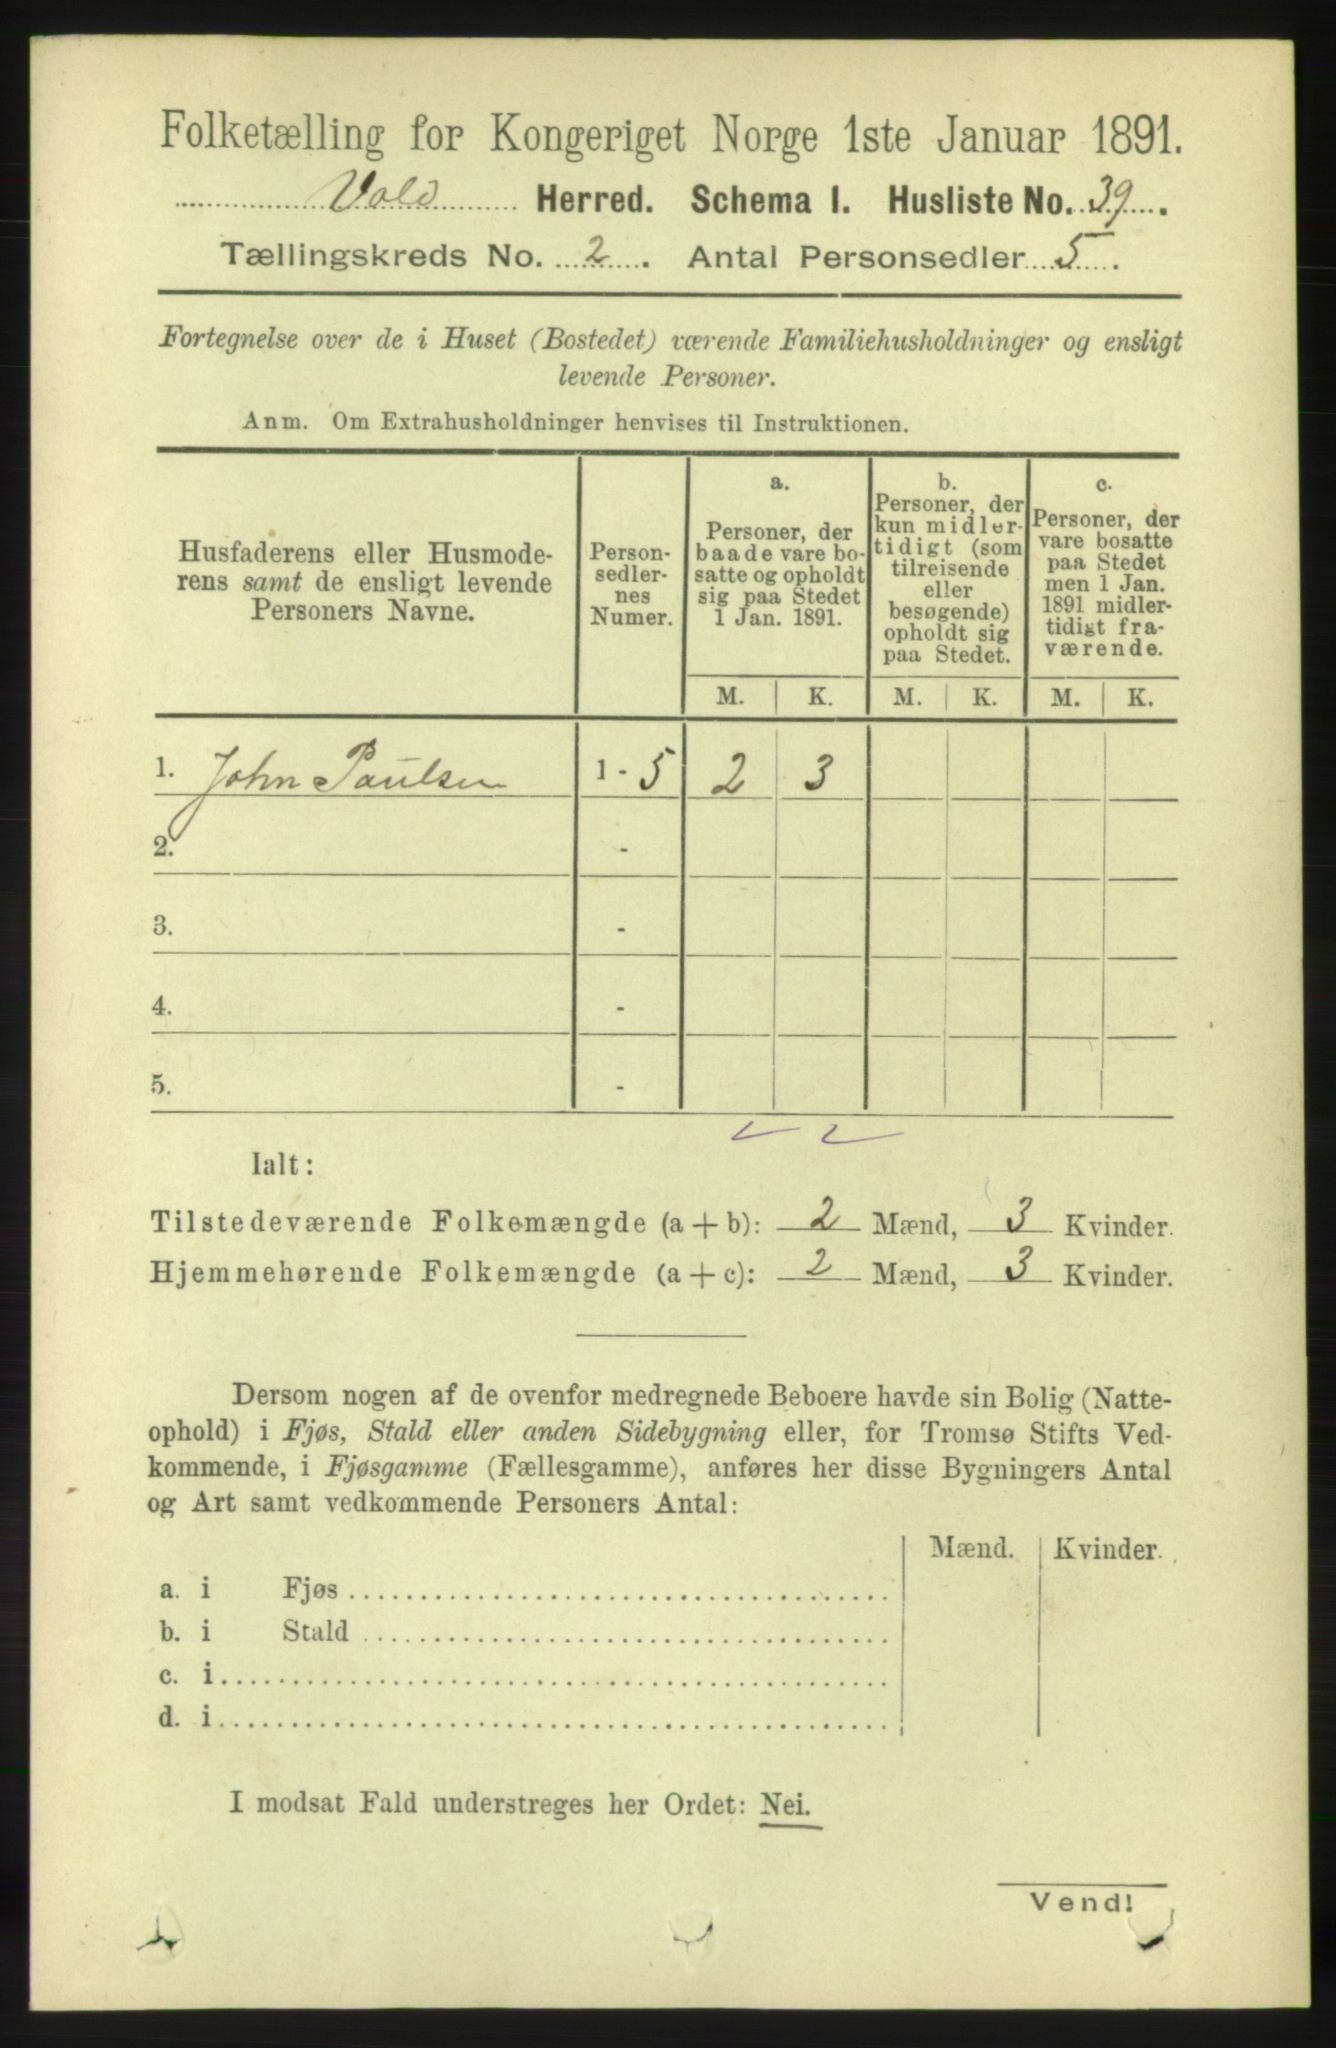 Folketælling for Kongeriget Norge 1ste Januar 1891.
Vold Herred. Schema I. Husliste No. 39.
Tællingskreds No. 2. Antal Personsedler 5.
Fortegnelse over de i Huset (Bostedet) værende Familiehusholdninger og ensligt
levende Personer.
Anm. Om Extrahusholdninger henvises til Instruktionen.
Husfaderens eller Husmode-
rens samt de ensligt levende
Personers Navne.
Person-
sedler-
nes
Numer.
a.
Personer, der
baade vare bo-
satte og opholdt
sig paa Stedet
1 Jan. 1891.
b.
Personer, der
kun midler-
tidigt (som
tilreisende
eller
besøgende)
opholdt sig
paa Stedet.
c.
Personer, der
vare bosatte
paa Stedet
men 1 Jan.
1891 midler-
tidigt fra-
værende.
M. K. M. K. M. K.
1. John Paulsen 1 - 5 2 3
2. -
3. -
4. -
5. -
Ialt:
Tilstedeværende Folkemængde (a + b): 2 Mænd, 3 Kvinder.
Hjemmehørende Folkemængde (a + c): 2 Mænd, 3 Kvinder.
Dersom nogen af de ovenfor medregnede Beboere havde sin Bolig (Natte-
ophold) i Fjøs, Stald eller anden Sidebygning eller, for Tromsø Stifts Ved-
kommende, i Fjøsgamme (Fællesgamme), anføres her disse Bygningers Antal
og Art samt vedkommende Personers Antal:
Mænd. Kvinder.
a. i Fjøs
b. i Stald
c. i
d. i
I modsat Fald understreges her Ordet: Nei.
Vend!